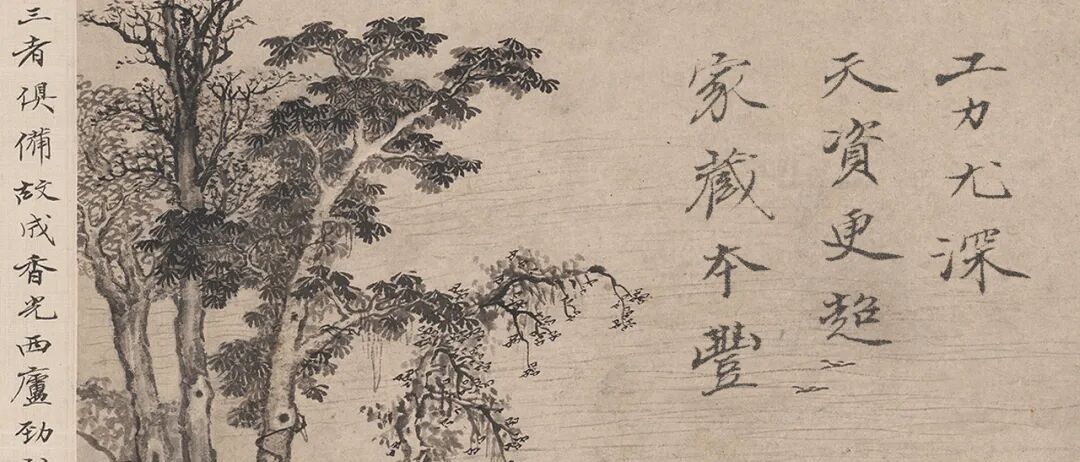 工力尤深
天資更超
家藏本豐
三者俱備故成香光西廬勁